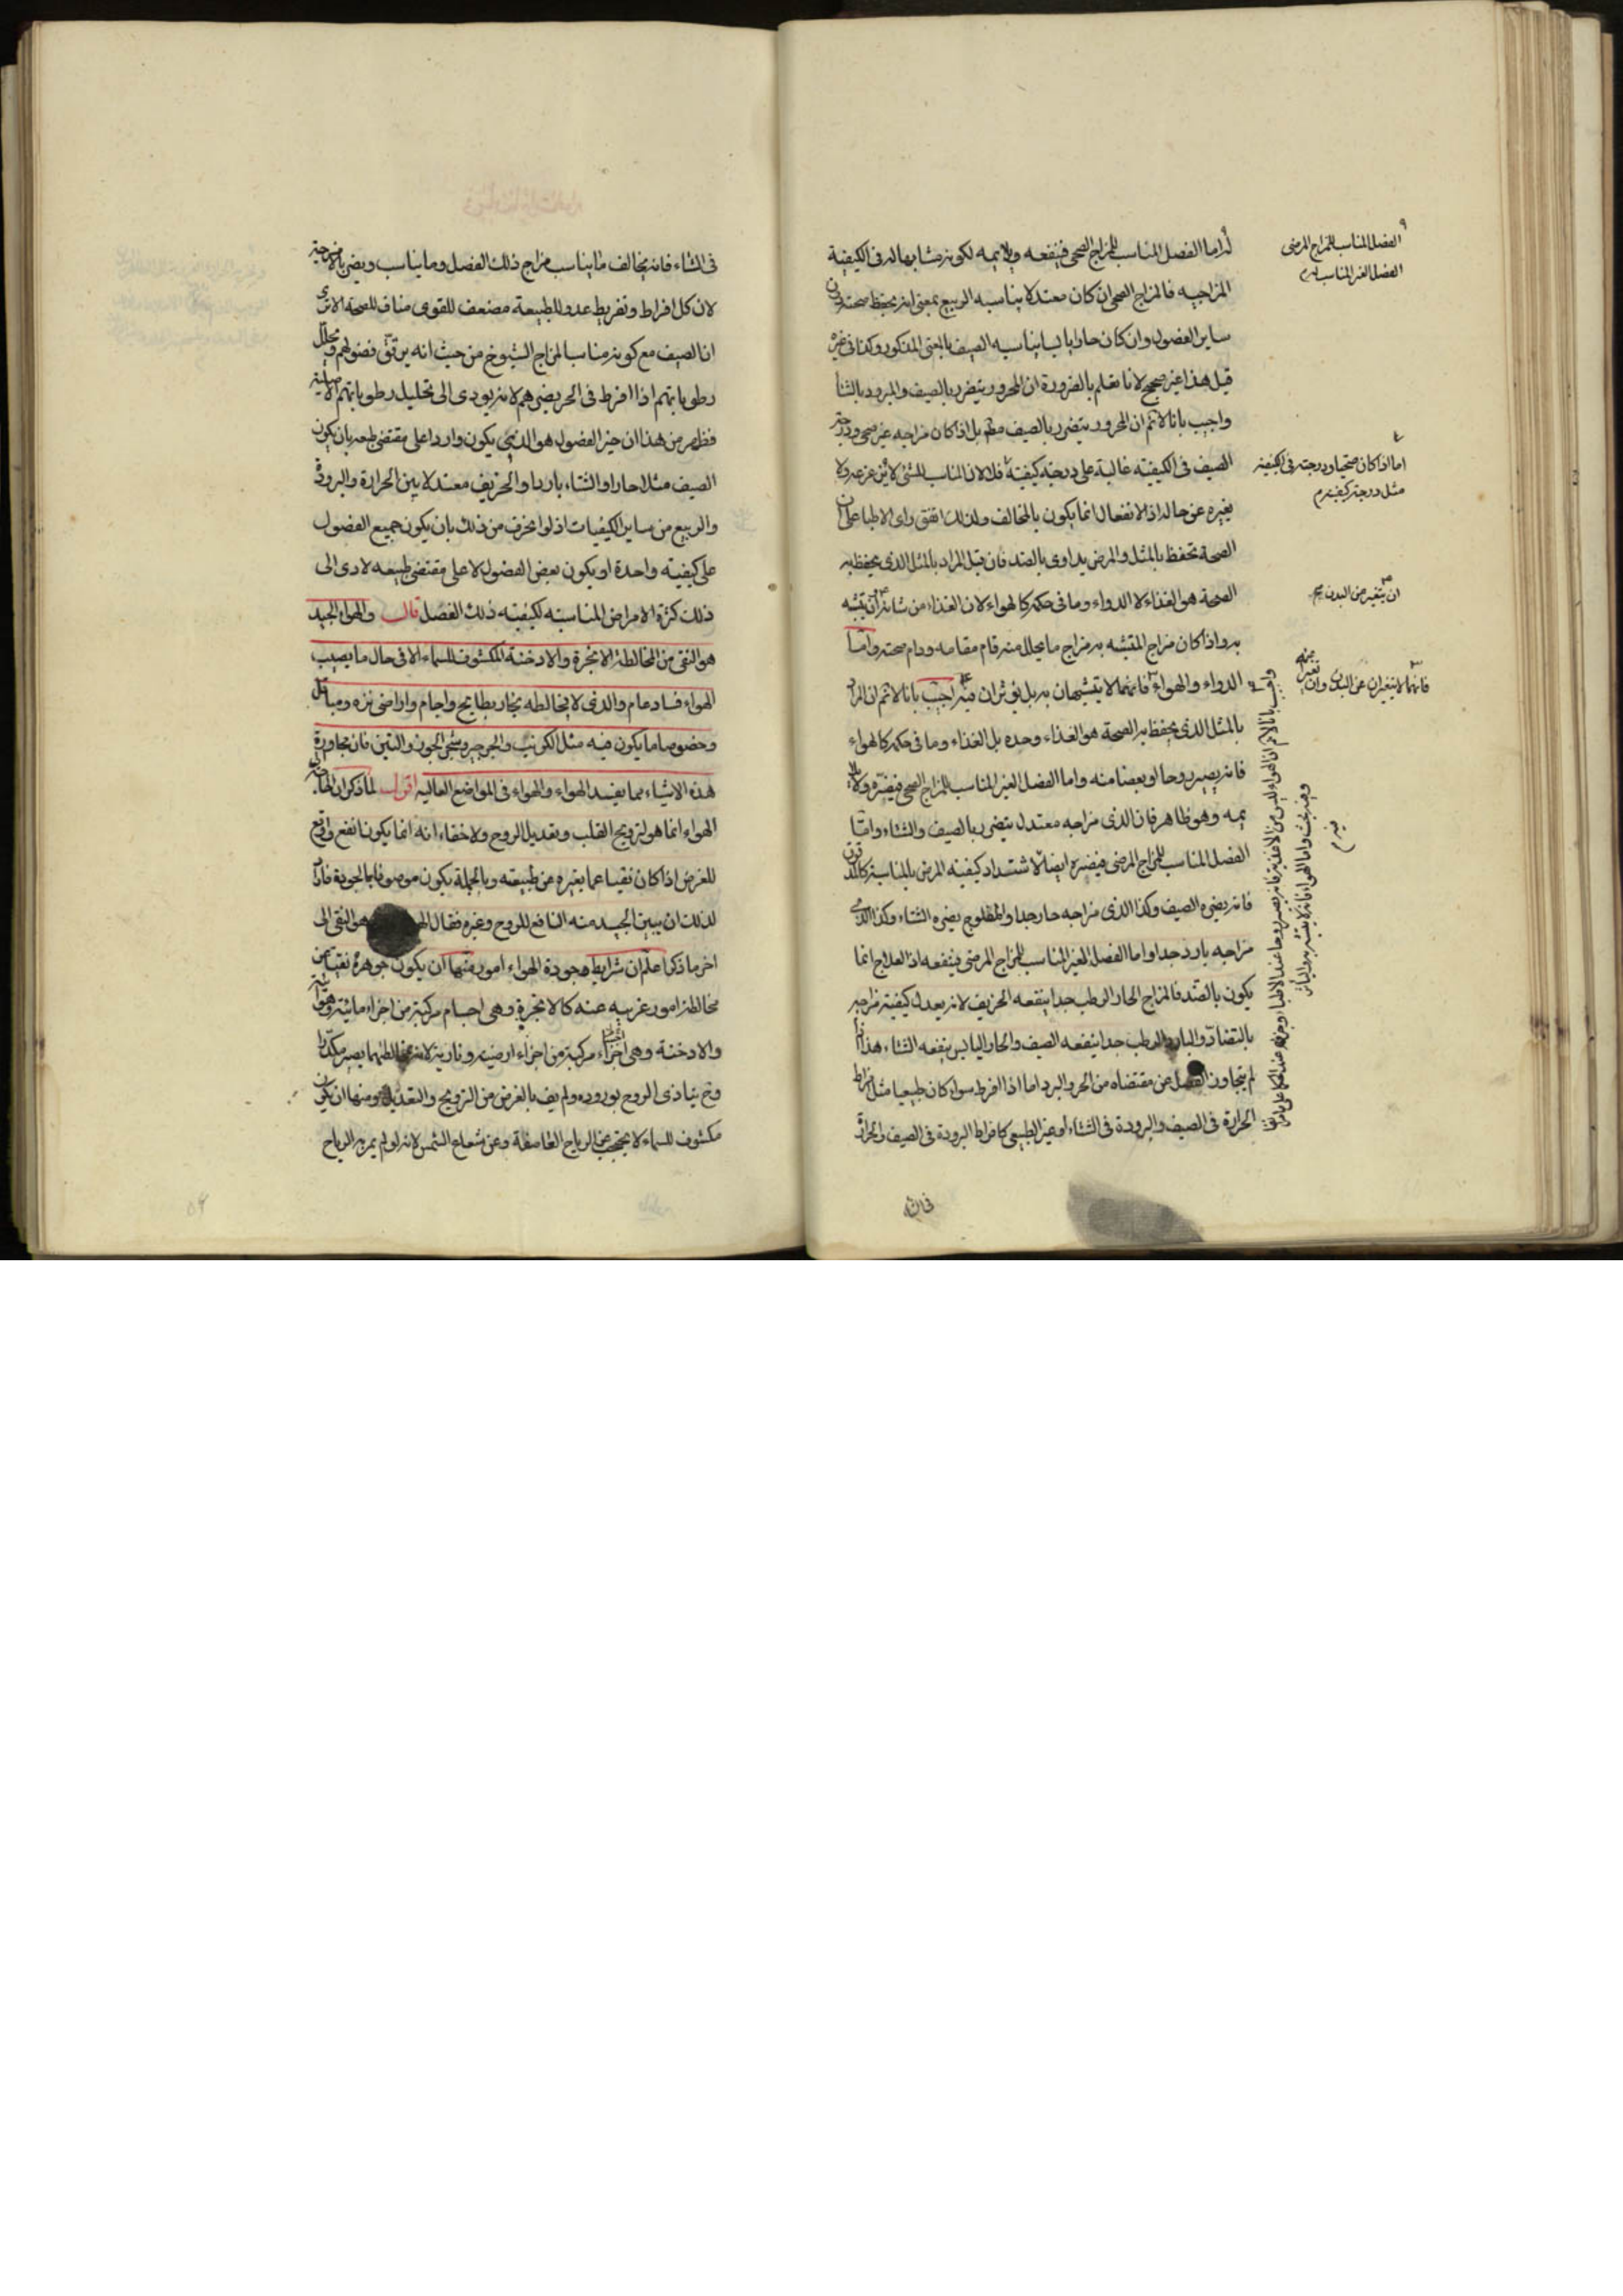 له اما الفصل المناسب للمزاج الصحى فينفعه ويلايمه لكونه مشابها له فى الكيفية
المزاجيه فالمزاج الصحى ان كان معتدلا يناسبه الربيع بمعنى انه يحفظ صحته دون
ساير الفصول وان كان حارا يابسا يناسبه الصيف بالمعنى المذكور وكذا فى غيره
قيل هذا غير صحيح لانا نعلم بالضرورة ان المحرور يتضرر بالصيف والمبرود بالشتا
واجيب بانا لانم ان المحرور يتضرر بالصيف مطلقا بل اذا كان مزاجه غير صحى ودرجة
الصيف فى الكيفيته غالبة على درجته كيفيته فلا لان المناسب للشئ لا ولا
يغيره عن حاله اذ الانفعال انما يكون بالمخالف ولذلك اتفق راى الاطبا على ان
الصحة تحفظ بالمثل والمرض يداوى بالضد فان قيل المراد بالمثل الذى يحفظ به
الصحة هو الغذاء لا الدواء وما فى حكمه كالهواء لان الغذاء من شانه ان يتشبه
به واذا كان مزاج المتشبه به مزاج ما يحلل منه قام مقامه ودام صحته واما
الدواء والهواء فانهما لا يتشبهان به بل يوثران فيه اجيب بانا لانم ان المراد
بالمثل الذى يحفظ به الصحة هو الغذاء وحده بل الغذاء وما فى حكمه كالهواء
فانه يصير روحا او بعضا منه واما الفصل الغير المناسب للمزاج الصحى فيضره ولا
يمه وهو ظاهر فان الذى مزاجه معتدل يتضرر بالصيف والشتاء واما
الفصل المناسب للمزاج المرضى فيضره ايضا لاشتداد كيفيته المرض بالمناسبة
فانه يضره الصيف وكذا الذى مزاجه حار جدا والمفلوج يضره الشتاء وكذا الذى
مزاجه بارد جدا واما الفصل الغير المناسب للمزاج المرضى فينفعه اذ العلاج انما
يكون بالضد فالمزاج الحار الرطب جدا ينفعه الخريف لانه يعدل كيفيته مزاجه
بالتضاد والبارد الرطب جدا ينفعه الصيف والحار اليابس ينفعه الشتاء هذا ان
لم يتجاوز الفصل عن مقتضاه من الحر والبرد اما اذا افرط سواء كان طبيعيا مثل افراط
الحرارة فى الصيف والبرودة فى الشتاء او غير الطبيعى كافراط البرودة فى الصيف والحرارة
فى الشتاء
الفصل المناسب للمزاج المرضى
الفصل الغير المناسب له م
اما اذا كان صحيا ودرجته فى الكيفية
مثل درجته كيفيته م
ان يتغير من البدن
فانهما لا يتغيران عن البدن وان
فى الشتاء فانه يخالف ما يناسب مزاج ذلك الفصل وما يناسب ويضر بالامزجة
لان كل افراط وتفريط عدو للطبيعة مضعف للقوى مناف للصحة الا ترى
ان الصيف مع كونه مناسبا لمزاج الشيوخ من حيث انه يرقق فضولهم ويحلل
رطوباتهم اذا افرط فى الحر يضرهم لانه يودى الى تحليل رطوباتهم الاصلية
فظهر من هذا ان خير الفصول هو الذى يكون واردا على مقتضى طبعه بان يكون
الصيف مثلا حارا والشتاء باردا والخريف معتدلا بين الحرارة والبرودة
والربيع من ساير الكيفيات اذ لو انحرف من ذلك بان يكون جميع الفصول
على كيفيته واحدة او يكون بعض الفصول لا على مقتضى طبيعه لادى الى
ذلك كثرة الامراض المناسبته لكيفيته ذلك الفصل قال والهواء الجيد
هو النقى من المخالطة الابخرة والادخنة المكشوف للسماء الا فى حال ما يصيب
الهواء فساد عام والذى لا يخالطه بخار بطايح واجام واراضى نزه ومباقل
وخصوصا ما يكون فيه مثل الكرنب والجرجير وشجر الجوز والتين فان مجاورة
هذه الاشياء مما يفسد الهواء والهواء فى المواضع العاليه اقول لما ذكر ان
الهواء انما هو لترويح القلب وتعديل الروح ولا خفاء انه انما يكون انفع
للغرض اذا كان نقيا عما يغيره عن طبيعته وبالجملة يكون موصوفا بالجودة فاراد
لذلك ان يبين الجيد منه النافع للروح وغيره فقال هو النقى الى
اخر ما ذكر اعلم ان شرايط جودة الهواء امور منها ان يكون جوهره نقيا من
مخالطة امور غريبه عنه كالابخرة وهى اجسام مركبة من اجزاء مائية وهوائية
والادخنة وهى اجزاء مركبة من اجزاء ارضية ونارية لانه يصير مكدرا
وح يتاذى الروح بوروده ولم يف بالغرض من الترويح والتعديل ومنها ان يكون
مكشوف للسماء لا يحتجب عن الرياح العاصفة وعن شعاع الشمس لانه لو لم يمر به الرياح